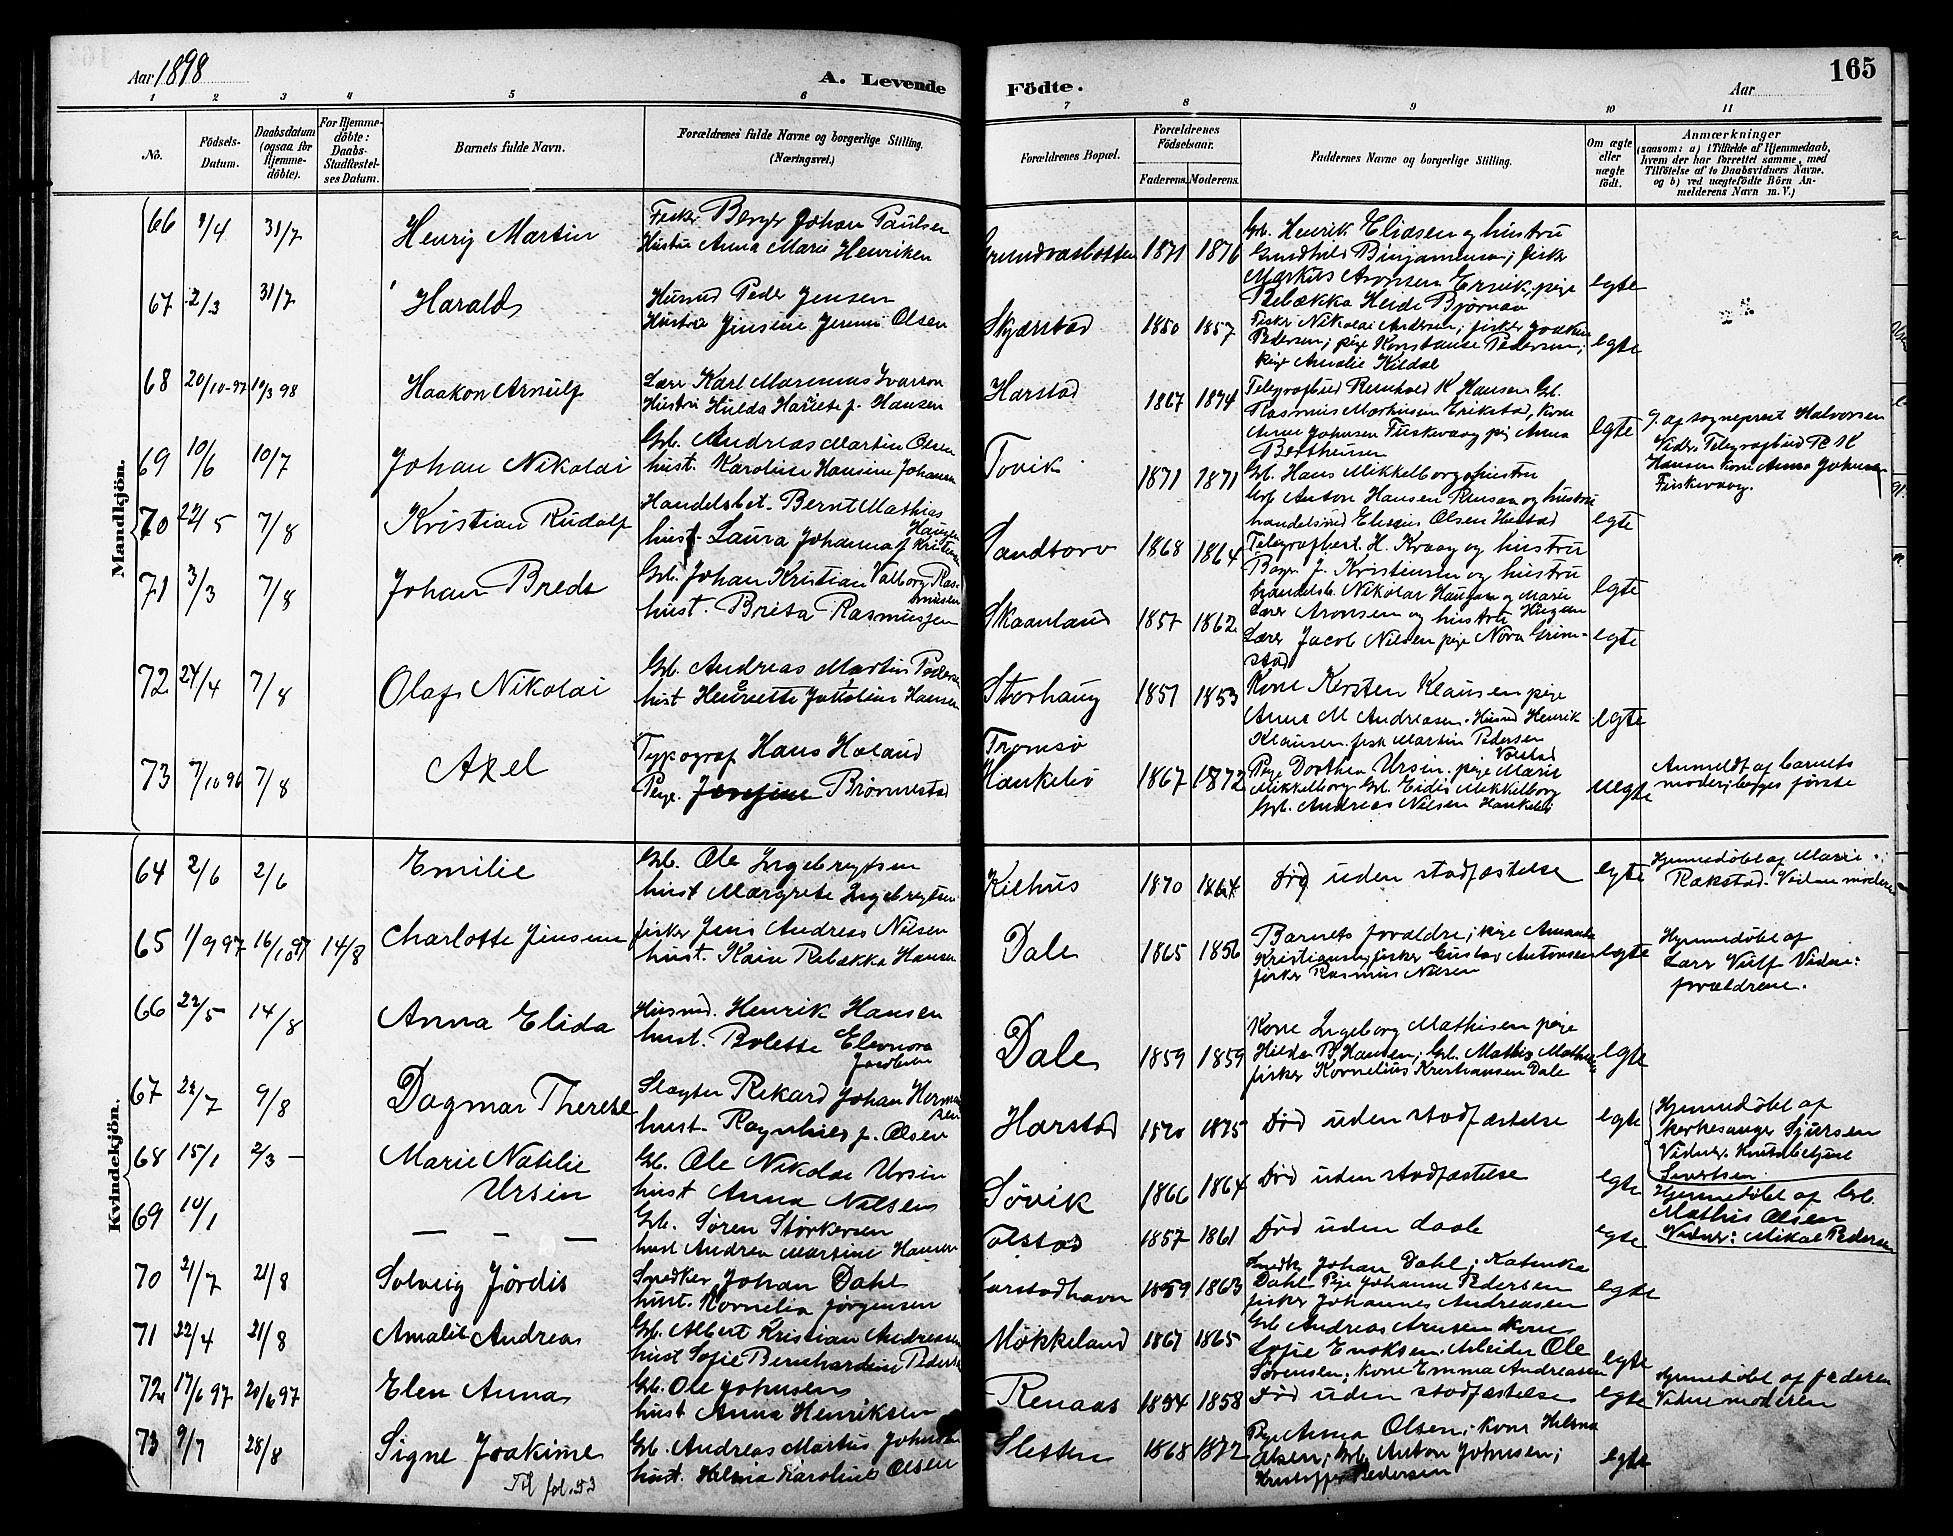 Aar 1898
A. Levende
Födte.
Aar
165
1 2 3 4 5 6 7 8 9 10 11
No.
Födsels-Datum.
Daabsdatum (ogsaa for Hjemme-döbte).
For Hjemme-döbte: Daabs-Stadfæstel-ses Datum.
Barnets fulde Navn.
Forældrenes fulde Navne og borgerlige Stilling. (Næringsvei.)
Forældrenes Bopæl.
Forældrenes Födselsaar.
Faderens. Moderens.
Faddernes Navne og borgerlige Stilling.
Om ægte eller uægte födt.
Anmærkninger
(saasom: a) i Tilfælde af Hjemmedaab, hvem der har forrettet samme, med Tilföielse af to Daabsvidners Navne. og b) ved uægtefödte Börn An-melderens Navn m. V.)
Mandkjön.
66 31/7 Henrij Martin
Fisker Berger Johan Paulsen
Hustru Anna Marie Henriken
1871 1876
Gb. Henrik Eliasen og hustru
Markus Aronsen
Rebækka Heide
egte
67 2/3 31/7 Harald
Husmd Peder Jensen
Hustru Jensine Olsen
Skjærstad 1850 1857
Fisker Nikolai Andersen; fisker
Pedersen; pige Konstanse Pedersen;
pige Amalie Kildal
egte
68 20/10-97 10/3 98 Haakon Arnulf
Lærer Karl Ivarson
Hustru Hulda f. Hansen
Harstad 1867 1874
Telegrafbud Reinhold K Hansen Gb.
Erikstad, Kone
Anne Johnsen Fuskevaag pig Anna
Bertheusen
egte
H. af sogneprest Halvorsen
Vidn. Telegrafbud R K
Hansen Kone Anna Johnsen
Fuskevaag.
69 10/6 10/7 Johan Nikolai
Gb. Andreas Martin Olsen
hust. Karoline Hansine Johansen
Tovik 1871 1871
Gb. Hans Mikkelborg og hustru
Gb Anton Hansen og hustru
Olsen
egte
70 22/5 7/8 Kristian Rudolf
Handelsbet. Bernt Mathias
Haugen
hust. Laura Johanna f.
Sandtorv 1868 1864
Telegrafbest. H. Kraag og hustru
J. Kristensen og hustru
handelsb. Nikolai Haugen og Marie
Haugen
egte
71 3/3 7/8 Johan Brede
Gb. Johan Kristian Valborg Ras-
musen
hust. Brita Rasmussen
Skaanland 1857 1862
Lærer Aronsen og hustru
Lærer Jacob Nilsen pige Nora Grim-
stad
egte
72 24/4 7/8 Olaf Nikolai
Gb. Andreas Martin Pedersen
hust Henriette Hansen
Storhaug 1851 1853
Kone Kersten Klausen pige
Anne M Andreasen. Husmd Henrik
Klausen. fisk Martin Pedersen
egte
73 7/10 96 7/8 Axel
Typograf Hans Holand
Pige. Brönnestad
Tromsø
1867 1872
Pige Dorthea Ursin. pige Marie
Mikkelborg. Gb. Eidis Mikkelborg
Gb. Andreas Nilsen
uegte
Anmeldt af barnets
moder; begges første
Kvindekjön.
64 2/6 2/6 Emilie
Gb. Ole Ingebrigtsen
hust Margrete Ingebrigtsen
Kilhus 1870 1864
Død uden stadfæstelse
egte
Hjemmedøbt af Marie
Rokstad. Vidne moderen
65 1/9 97 16/10 97 14/8 Charlotte Jensine
fisker Jens Andreas Nilsen
hust. Karen Rebækka Hansen
Dale 1865 1856
Barnets forældre; pige Amanda
fisker Gustav Antonsen
fisker Rasmus Nilsen
egte
Hjemmedøbt af
Lærer Vulf Vidne:
forældrene.
66 22/5 14/8 Anna Elida
Husmd. Henrik Hansen
hust. Bolette Eleonora
Dale 1859 1859
Kone Ingeborg Mathisen pige
Hilda B Hansen; Gb. Mathis
fisker Kornelius Kristiansen Dale
egte
67 22/7 9/8 Dagmar Therese
Slagter Rikard Johan Herman
sen
hust. Ragnhild f. Olsen
Harstad 1870 1875
Død uden stadfæstelse
egte
Hjemmedøbt af
kirkesanger Sjursen
68 15/1 2/3 Marie Natelie
Ursin
Gb. Ole Nikolai Ursin
hust Anna Nilsen
Søvik 1866 1864
Død uden stadfæstelse
egte
Hjemmedøbt af Gb.
Mathis Olsen
Vidner: Mikal Pedersen
69 10/1 — — —
Gb. Søren Størkersen
hust Andrea Martine Hansen
1857 1861
Død uden daab
egte
70 21/7 21/8 Solveig Jördis
Snedker Johan Dahl
hust. Kornelia Jørgensen
Harstadhavn 1859 1863
Snedk. Johan Dahl; Katinka
Dahl Pige Johanne Pedersen
fisker Johannes Andreasen
egte
71 22/4 21/8 Amalie Andrea
Gb. Albert Kristian Andreasen
hust Sofie Bernhardine Pedersen
Møkkeland 1867 1865
Gb Andreas Arnsen kone
Sofie Enoksen. Arbeider Ole
Sørensen; kone Emma Andreasen
egte
72 17/6 97 20/6 97 Elen Anna
Gb. Ole Johnsen
hust Anna Henriksen
Renaas 1854 1858
Død uden stadfæstelse
egte
Hjemmedøbt af faderen
Vidne moderen
73 9/7 28/8 Signe Joakime
Gb. Andreas Martin Johnsen
hust. Helmia Karoline Olsen
Sletten 1868 1872
Pige Anna Olsen; kone Helena
Olsen; Gb. Anton Johnsen;
Kristoffer Pedersen
egte
Til fol. 53